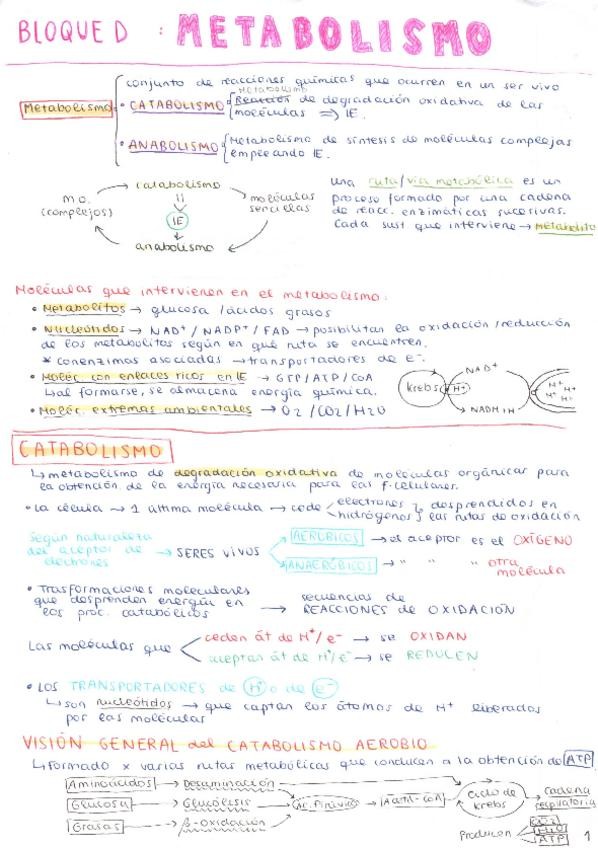 BLOQUE D : METABOLISMO
Metabolismo
conjunto de reacciones químicas que ocurren en un ser vivo
Metabolismo
• CATABOLISMO Reacción de degradación oxidativa de las
moléculas => IE.
• ANABOLISMO Metabolismo de síntesis de moléculas complejas
empleando IE.
catabolismo
M.O.
(complejos)
IE
moléculas
sencillas
anabolismo
una ruta/vía metabólica es un
proceso formado por una cadena
de reacc. enzimáticas sucesivas.
Cada sust que interviene → metabolito
Moléculas que intervienen en el metabolismo:
• Metabolitos → glucosa / ácidos grasos
• Nucleótidos → NAD+ / NADP+ / FAD → posibilitan la oxidación/reducción
de los metabolitos según en qué ruta se encuentren.
* conenzimas asociadas → transportadores de e-.
• Moléc con enlaces ricos en IE → GTP / ATP / CoA
↳ al formarse, se almacena energía química.
• Moléc. extremas ambientales → O2 / CO2 / H2O
Krebs
H+
NAD+
NADH+H
H+ H+
H+ H+
CATABOLISMO
↳ metabolismo de degradación oxidativa de moléculas orgánicas para
la obtención de la energía necesaria para las f. celulares.
• La célula → 1 última molécula → cede electrones y desprendidos en
hidrógenos las rutas de oxidación
Según naturaleza
del aceptor de
electrones
→ SERES VIVOS
AERÓBICOS → el aceptor es el OXÍGENO
ANAERÓBICOS → " " " otra
molécula
• Trasformaciones moleculares
que desprenden energía en
los proc. catabólicos
→ secuencias de
REACCIONES DE OXIDACIÓN
Las moléculas que
ceden át de H+/e- → se OXIDAN
aceptan át de H+/e- → se REDUCEN
• LOS TRANSPORTADORES de H+ o de e-
↳ son nucleótidos → que captan los átomos de H+ liberados
por las moléculas
VISIÓN GENERAL del CATABOLISMO AEROBIO
↳ Formado x varias rutas metabólicas que conducen a la obtención de ATP
Aminoácidos → Desaminación
Glucosa → Glucólisis → Ác. Pirúvico → Acetil-CoA → Ciclo de
Krebs → cadena
respiratoria
Grasas → β-oxidación
Producen
CO2
H2O
ATP
1